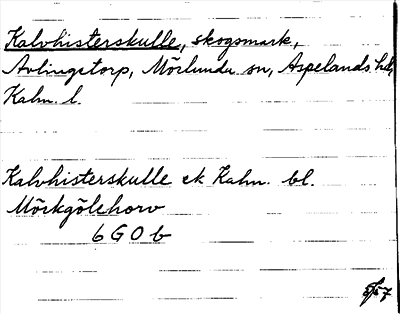 Kalvhisterskulle, skogsmark,
Avlingstorp, Mörlunda sn, Aspelands hd,
Kalm. l.
Kalvhisterskulle ek Kalm. bl.
Mörkgölehorv
6 G 0 b
5/57